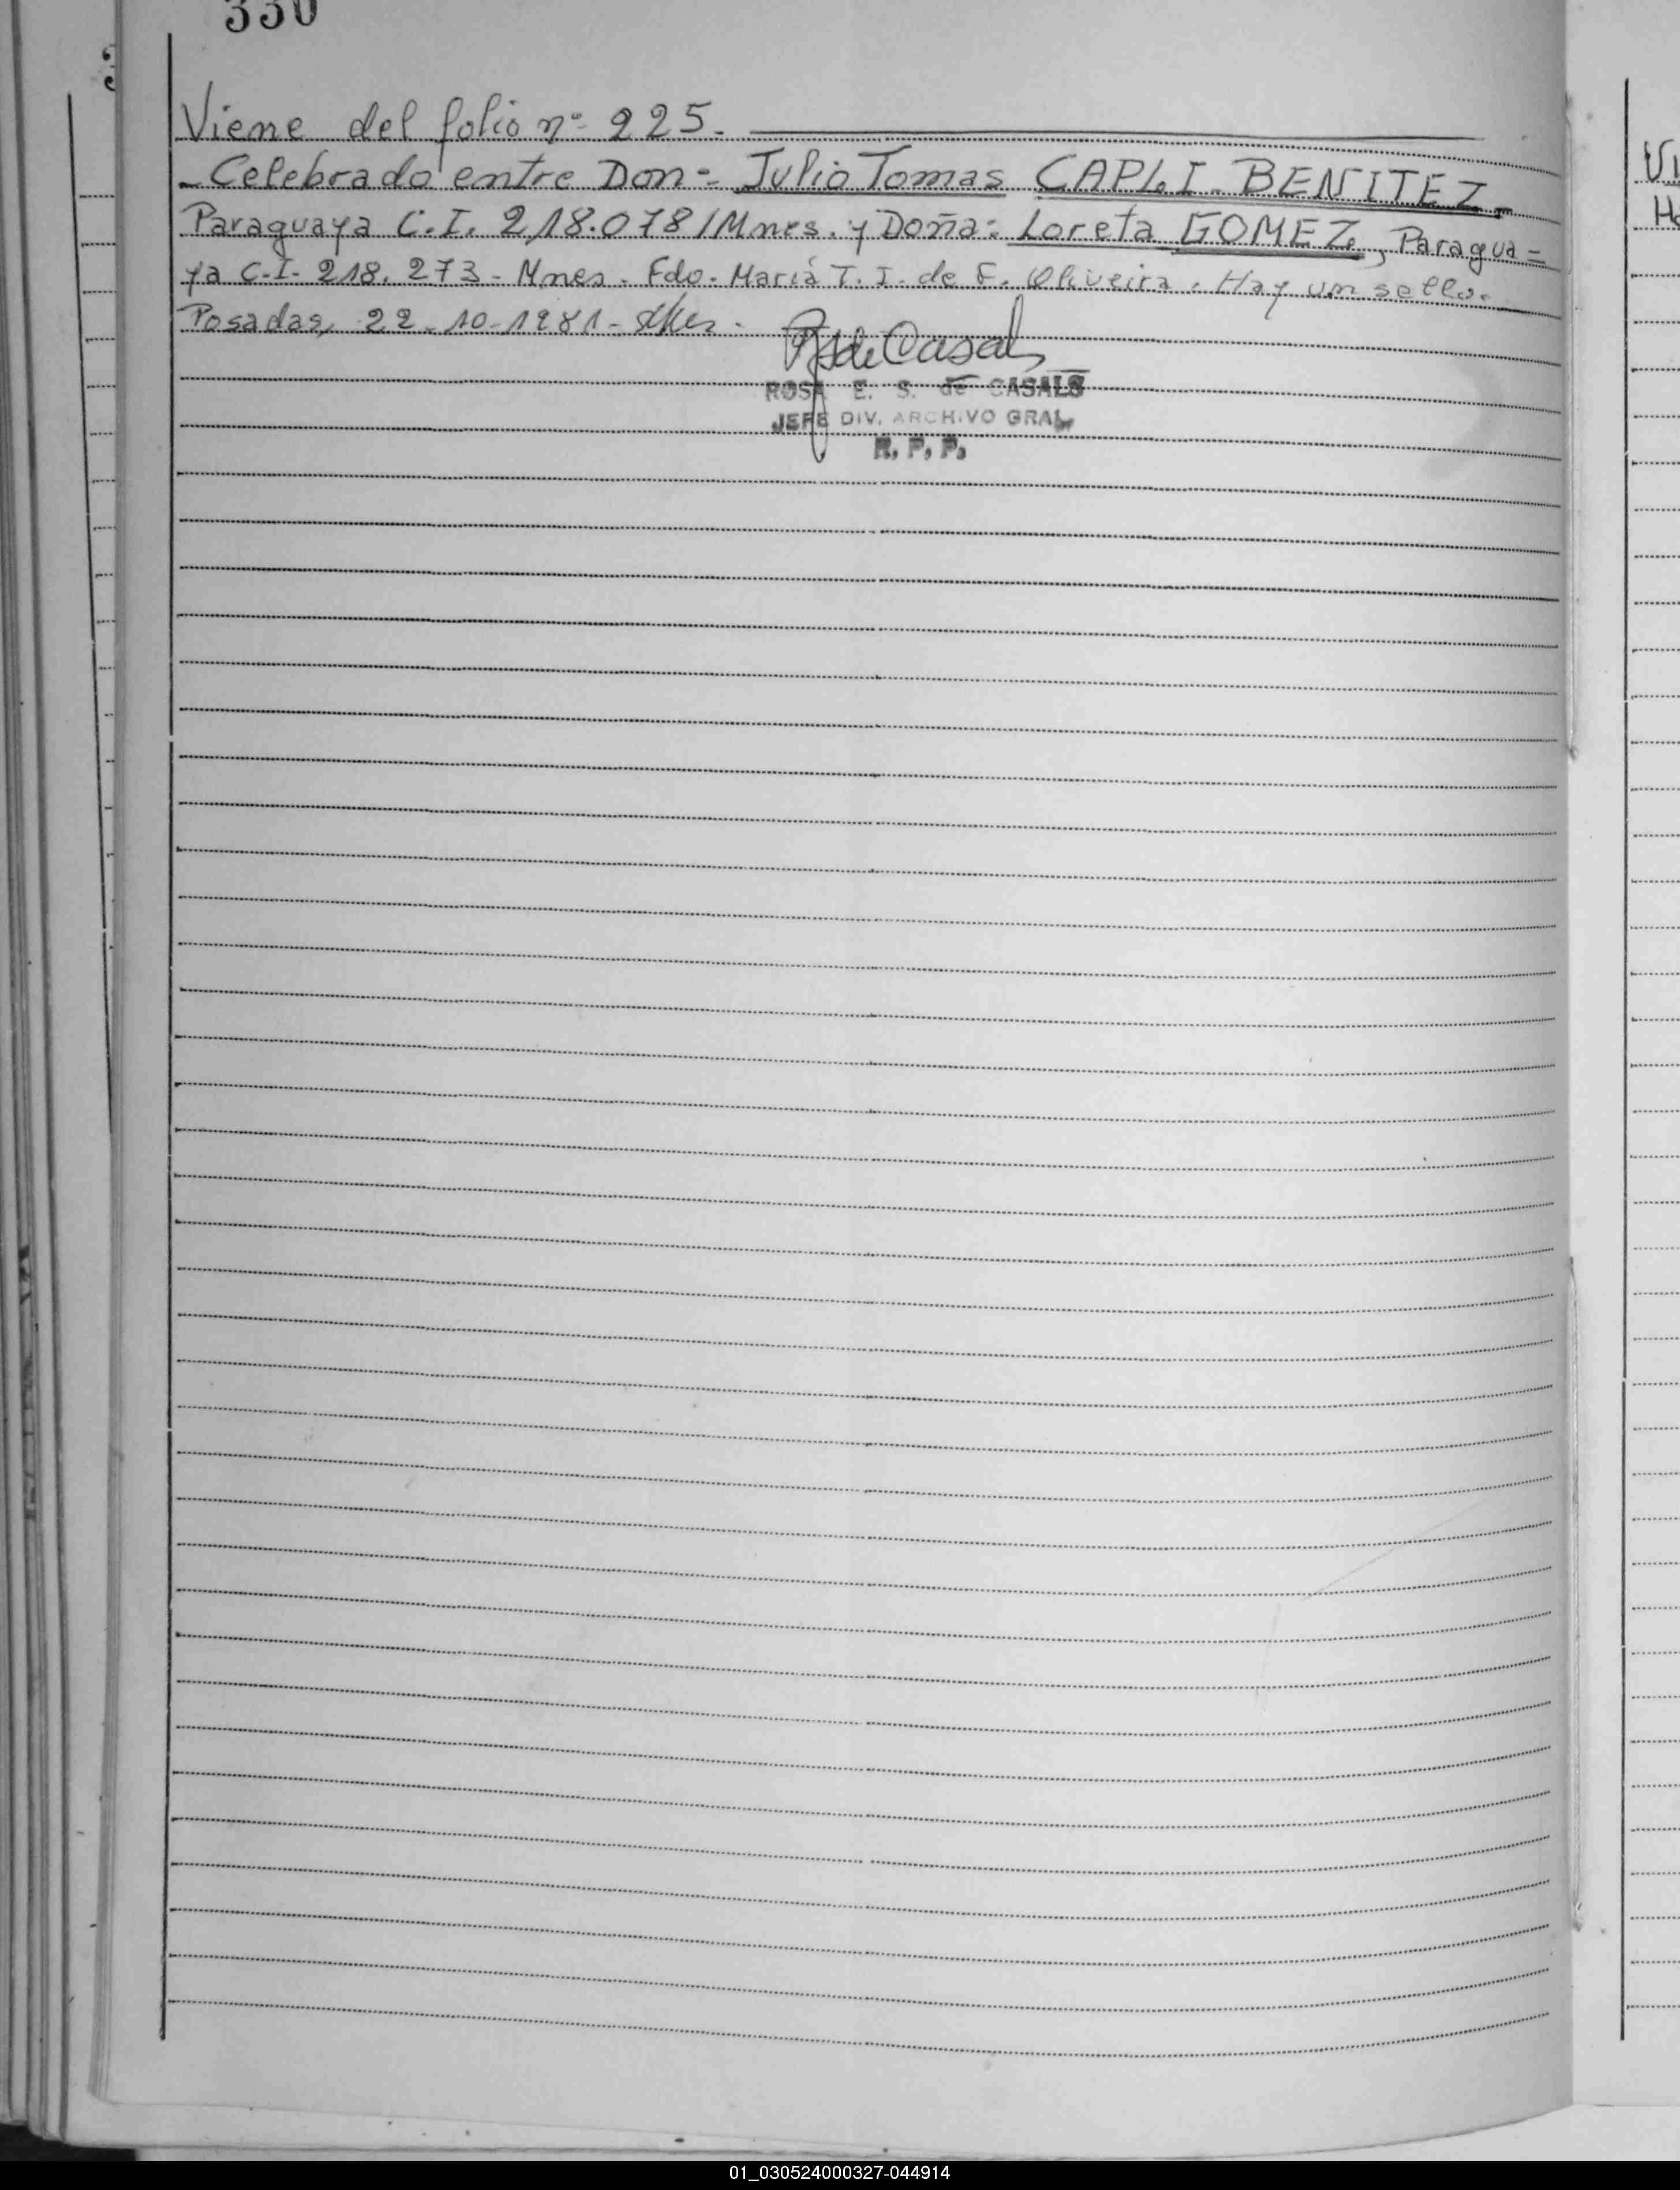 330
Viene del folio nº 225.
Celebrado entre Don= Julio Tomas CAPLI-BENITEZ.
Paraguaya C.I. 218.078/Mnes. y Doña: Loreta GOMEZ, Paragua=
ya C-I- 218.273- Mnes. Fdo. Mariá T. I. de F. Oliveira. Hay un sello.
Posadas, 22-10-1981-
RSdeCasals
ROSA E. S. de CASALS
JEFE DIV. ARCHIVO GRAL.
R. P. P.
01_030524000327-044914